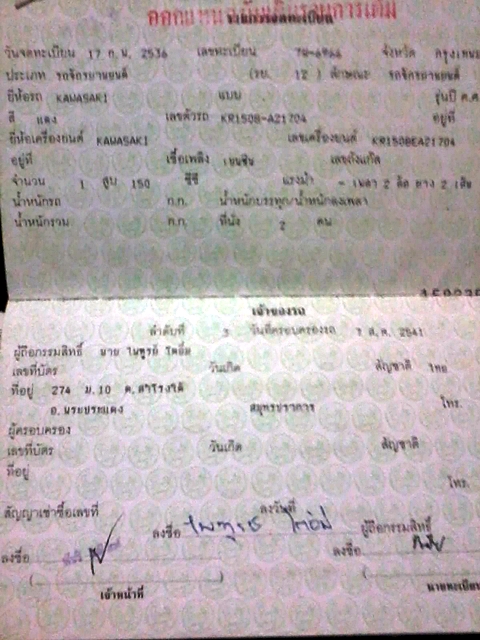 วันจดทะเบียน 17 ก.พ. 2536 เลขทะเบียน จังหวัด กรุงเทพ
ประเภท รถจักรยานยนต์ (รย. 12 ) ลักษณะ รถจักรยานยนต์
ยี่ห้อรถ KAWASAKI แบบ รุ่นปี ค.ศ.
สี แดง เลขตัวรถ KR150B-A21704 อยู่ที่
ยี่ห้อเครื่องยนต์ KAWASAKI เลขเครื่องยนต์ KR150BEA21704
อยู่ที่ เชื้อเพลิง เบนซิน เลขถังแก๊ส
จำนวน 1 สูบ 150 ซีซี แรงม้า - เพลา 2 ล้อ ยาง 2 เส้น
น้ำหนักรถ ก.ก. น้ำหนักบรรทุก/น้ำหนักลงเพลา
น้ำหนักรวม ก.ก. ที่นั่ง 2 คน
เจ้าของรถ
ลำดับที่ 3 วันที่ครอบครองรถ 7 ส.ค. 2541
ผู้ถือกรรมสิทธิ์ นาย ไพฑูรย์
เลขที่บัตร วันเกิด สัญชาติ ไทย
ที่อยู่ 274 ม.10 ต.สำโรงใต้
อ.พระประแดง สมุทรปราการ โทร.
ผู้ครอบครอง
เลขที่บัตร วันเกิด สัญชาติ
ที่อยู่
โทร.
สัญญาเช่าซื้อเลขที่ ลงวันที่
ลงชื่อ ไพฑูรย์ ผู้ถือกรรมสิทธิ์
ลงชื่อ ลงชื่อ
เจ้าหน้าที่ นายทะเบียน